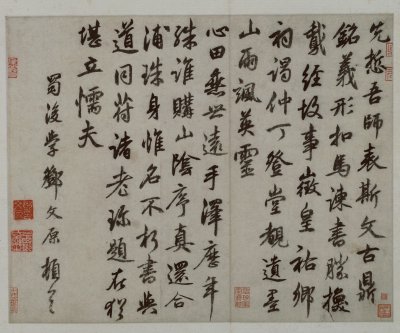 先悊吾師表斯文古鼎
銘義形扣馬諫書勝換
鵝經故事徵皇祐鄉
祠謁仲丁登堂觀遺墨
山雨颯英靈
心田無世遠手澤歷年
殊誰購山陰序真還合
浦珠身惟名不朽書與
道同符諸老珎題在猶
堪立懦夫
蜀後學鄧文原頓首